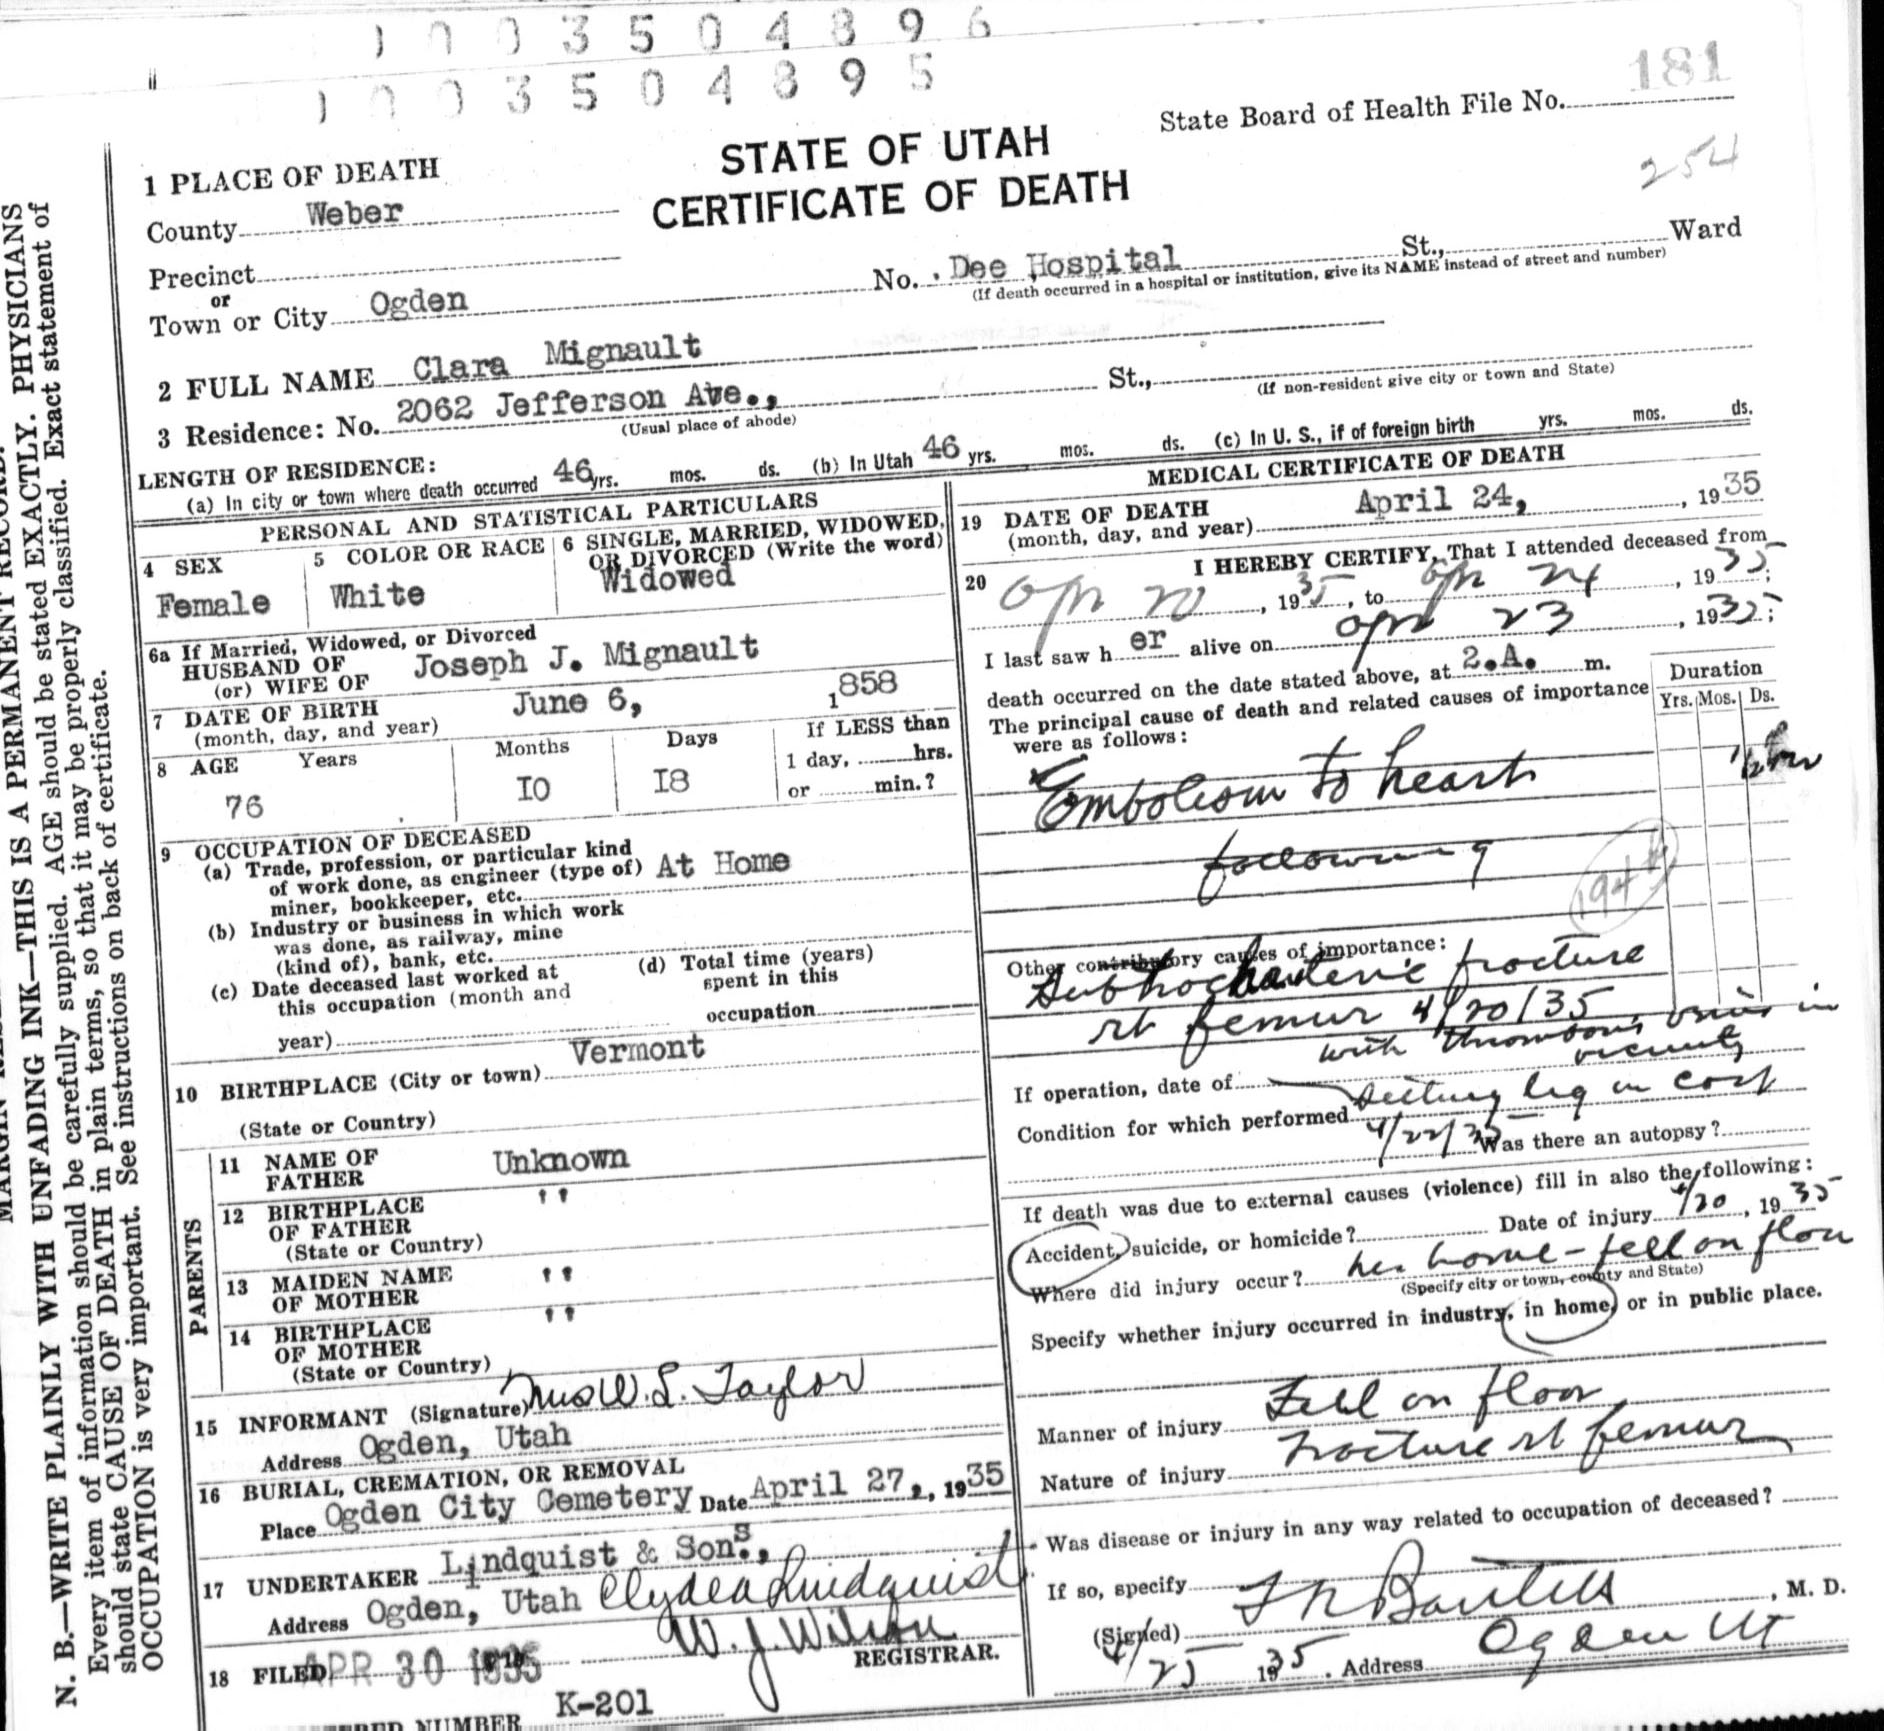 1 0 0 3 5 0 4 8 9 6
1 0 0 3 5 0 4 8 9 5
State Board of Health File No. 181
254
STATE OF UTAH
CERTIFICATE OF DEATH
1 PLACE OF DEATH
County Weber
Precinct
or
Town or City Ogden No. Dee Hospital St., Ward
(If death occurred in a hospital or institution, give its NAME instead of street and number)
2 FULL NAME Clara Mignault
3 Residence: No. 2062 Jefferson Ave., St.,
(Usual place of abode) (If non-resident give city or town and State)
LENGTH OF RESIDENCE:
(a) In city or town where death occurred 46 yrs. mos. ds. (b) In Utah 46 yrs. mos. ds. (c) In U. S., if of foreign birth yrs. mos. ds.
PERSONAL AND STATISTICAL PARTICULARS
4 SEX
Female
5 COLOR OR RACE
White
6 SINGLE, MARRIED, WIDOWED,
OR DIVORCED (Write the word)
Widowed
6a If Married, Widowed, or Divorced
HUSBAND OF
(or) WIFE OF Joseph J. Mignault
7 DATE OF BIRTH
(month, day, and year) June 6, 1858
8 AGE Years Months Days If LESS than
1 day, hrs.
or min.?
76 IO I8
9 OCCUPATION OF DECEASED
(a) Trade, profession, or particular kind
of work done, as engineer (type of) At Home
miner, bookkeeper, etc.
(b) Industry or business in which work
was done, as railway, mine
(kind of), bank, etc.
(c) Date deceased last worked at
this occupation (month and
year)
(d) Total time (years)
spent in this
occupation
10 BIRTHPLACE (City or town) Vermont
(State or Country)
PARENTS
11 NAME OF
FATHER Unknown
12 BIRTHPLACE
OF FATHER "
(State or Country)
13 MAIDEN NAME
OF MOTHER "
14 BIRTHPLACE
OF MOTHER "
(State or Country)
15 INFORMANT (Signature) Mrs W. L. Taylor
Address Ogden, Utah
16 BURIAL, CREMATION, OR REMOVAL
Place Ogden City Cemetery Date April 27, 1935
17 UNDERTAKER Lindquist & Sons.,
Address Ogden, Utah Clyde Lindquist
18 FILED APR 30 1935 W. J. Wilson
REGISTRAR.
NUMBER K-201
MEDICAL CERTIFICATE OF DEATH
19 DATE OF DEATH
(month, day, and year) April 24, 1935
20 I HEREBY CERTIFY, That I attended deceased from
Apr 20, 1935, to Apr 24, 1935;
I last saw her alive on Apr 23, 1935;
death occurred on the date stated above, at 2.A. m.
The principal cause of death and related causes of importance
were as follows:
Duration
Yrs. Mos. Ds.
Embolism to heart
following
194
Other contributory causes of importance:
Subtrochanteric fracture
rt femur 4/20/35
with thrombosis veins in
vicinity
If operation, date of
Condition for which performed Setting leg in cast
4/22/35 Was there an autopsy?
If death was due to external causes (violence) fill in also the following:
Accident, suicide, or homicide? Date of injury 4/20, 1935
Where did injury occur? her home - fell on floor
(Specify city or town, county and State)
Specify whether injury occurred in industry, in home, or in public place.
Manner of injury Fell on floor
Nature of injury Fracture rt femur
Was disease or injury in any way related to occupation of deceased?
If so, specify
(Signed) Bartlett, M. D.
4/25 1935. Address Ogden Ut
N. B.—WRITE PLAINLY WITH UNFADING INK—THIS IS A PERMANENT RECORD.
Every item of information should be carefully supplied. AGE should be stated EXACTLY. PHYSICIANS
should state CAUSE OF DEATH in plain terms, so that it may be properly classified. Exact statement of
OCCUPATION is very important. See instructions on back of certificate.